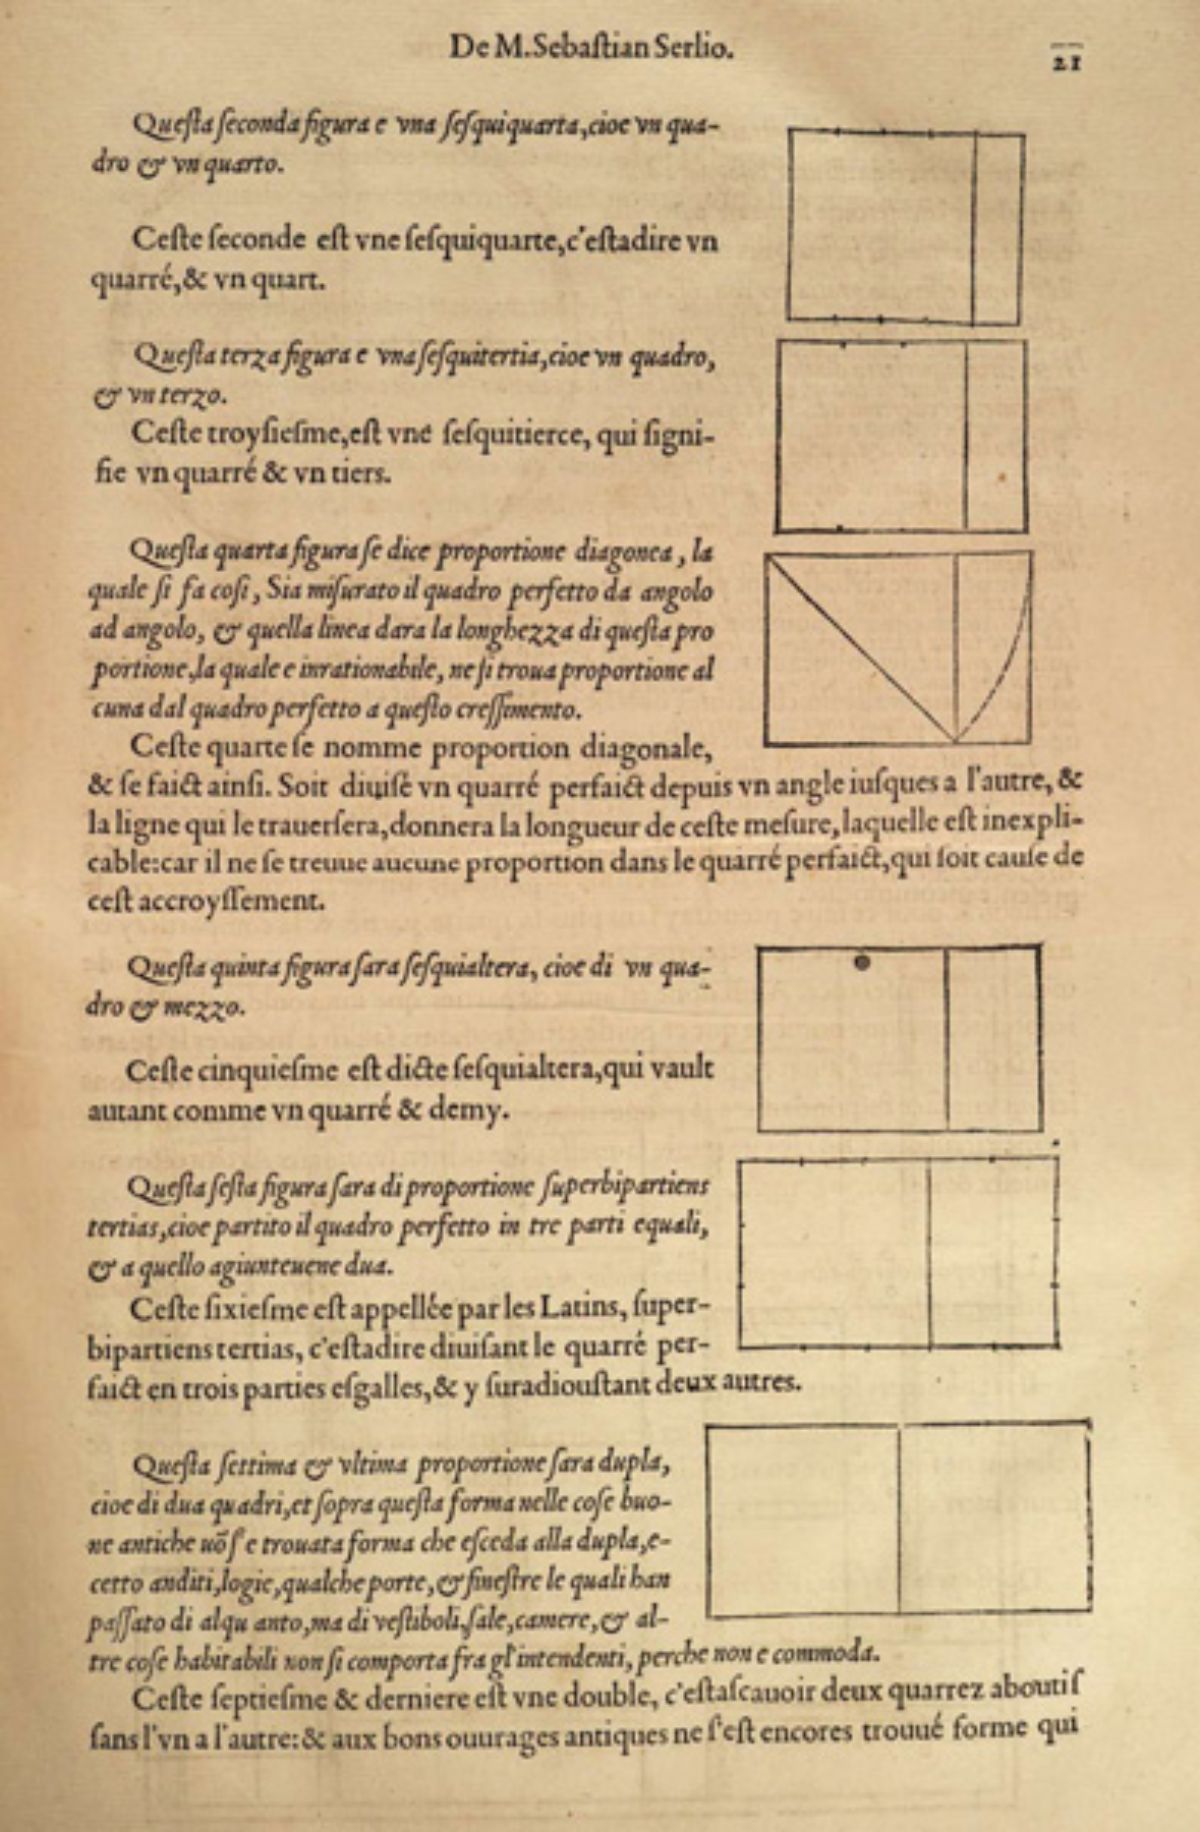 De M.Sebaſtian Serlio.
21
Queſta ſeconda figura e vna ſeſquiquarta,cioe vn qua-
dro & vn quarto.
Ceſte ſeconde eſt vne ſeſquiquarte,c'eſtadire vn
quarré,& vn quart.
Queſta terza figura e vna ſeſquitertia,cioe vn quadro,
& vn terzo.
Ceſte troyſieſme,eſt vne ſeſquitierce, qui ſigni-
fie vn quarré & vn tiers.
Queſta quarta figura ſe dice proportione diagonea , la
quale ſi fa coſi , Sia miſurato il quadro perfetto da angolo
ad angolo, & quella linea dara la longhezza di queſta pro
portione,la quale e inrationabile, ne ſi troua proportione al
cuna dal quadro perfetto a queſto creſſimento.
Ceſte quarte ſe nomme proportion diagonale,
& ſe faict ainſi. Soit diuiſé vn quarré perfaict depuis vn angle iuſques a l'autre, &
la ligne qui le trauerſera,donnera la longueur de ceſte meſure,laquelle eſt inexpli-
cable:car il ne ſe treuue aucune proportion dans le quarré perfaict,qui ſoit cauſe de
ceſt accroyſſement.
Queſta quinta figura ſara ſeſquialtera, cioe di vn qua-
dro & mezzo.
Ceſte cinquieſme eſt dicte ſeſquialtera,qui vault
autant comme vn quarré & demy.
Queſta ſeſta figura ſara di proportione ſuperbipartiens
tertias,cioe partito il quadro perfetto in tre parti equali,
& a quello agiunteuene dua.
Ceſte ſixieſme eſt appellée par les Latins, ſuper-
bipartiens tertias, c'eſtadire diuiſant le quarré per-
faict en trois parties eſgalles,& y ſuradiouſtant deux autres.
Queſta ſettima & vltima proportione ſara dupla,
cioe di dua quadri,et ſopra queſta forma nelle coſe buo-
ne antiche nõ ſ'e trouata forma che eſceda alla dupla,e-
cetto anditi,logie,qualche porte,& fineſtre le quali han
paſſato di alqu anto,ma di veſtiboli,ſale,camere,& al-
tre coſe habitabili non ſi comporta fra gl'intendenti, perche non e commoda.
Ceſte ſeptieſme & derniere eſt vne double, c'eſtaſcauoir deux quarrez aboutiſ
ſans l'vn a l'autre:& aux bons ouurages antiques ne ſ'eſt encores trouué forme qui